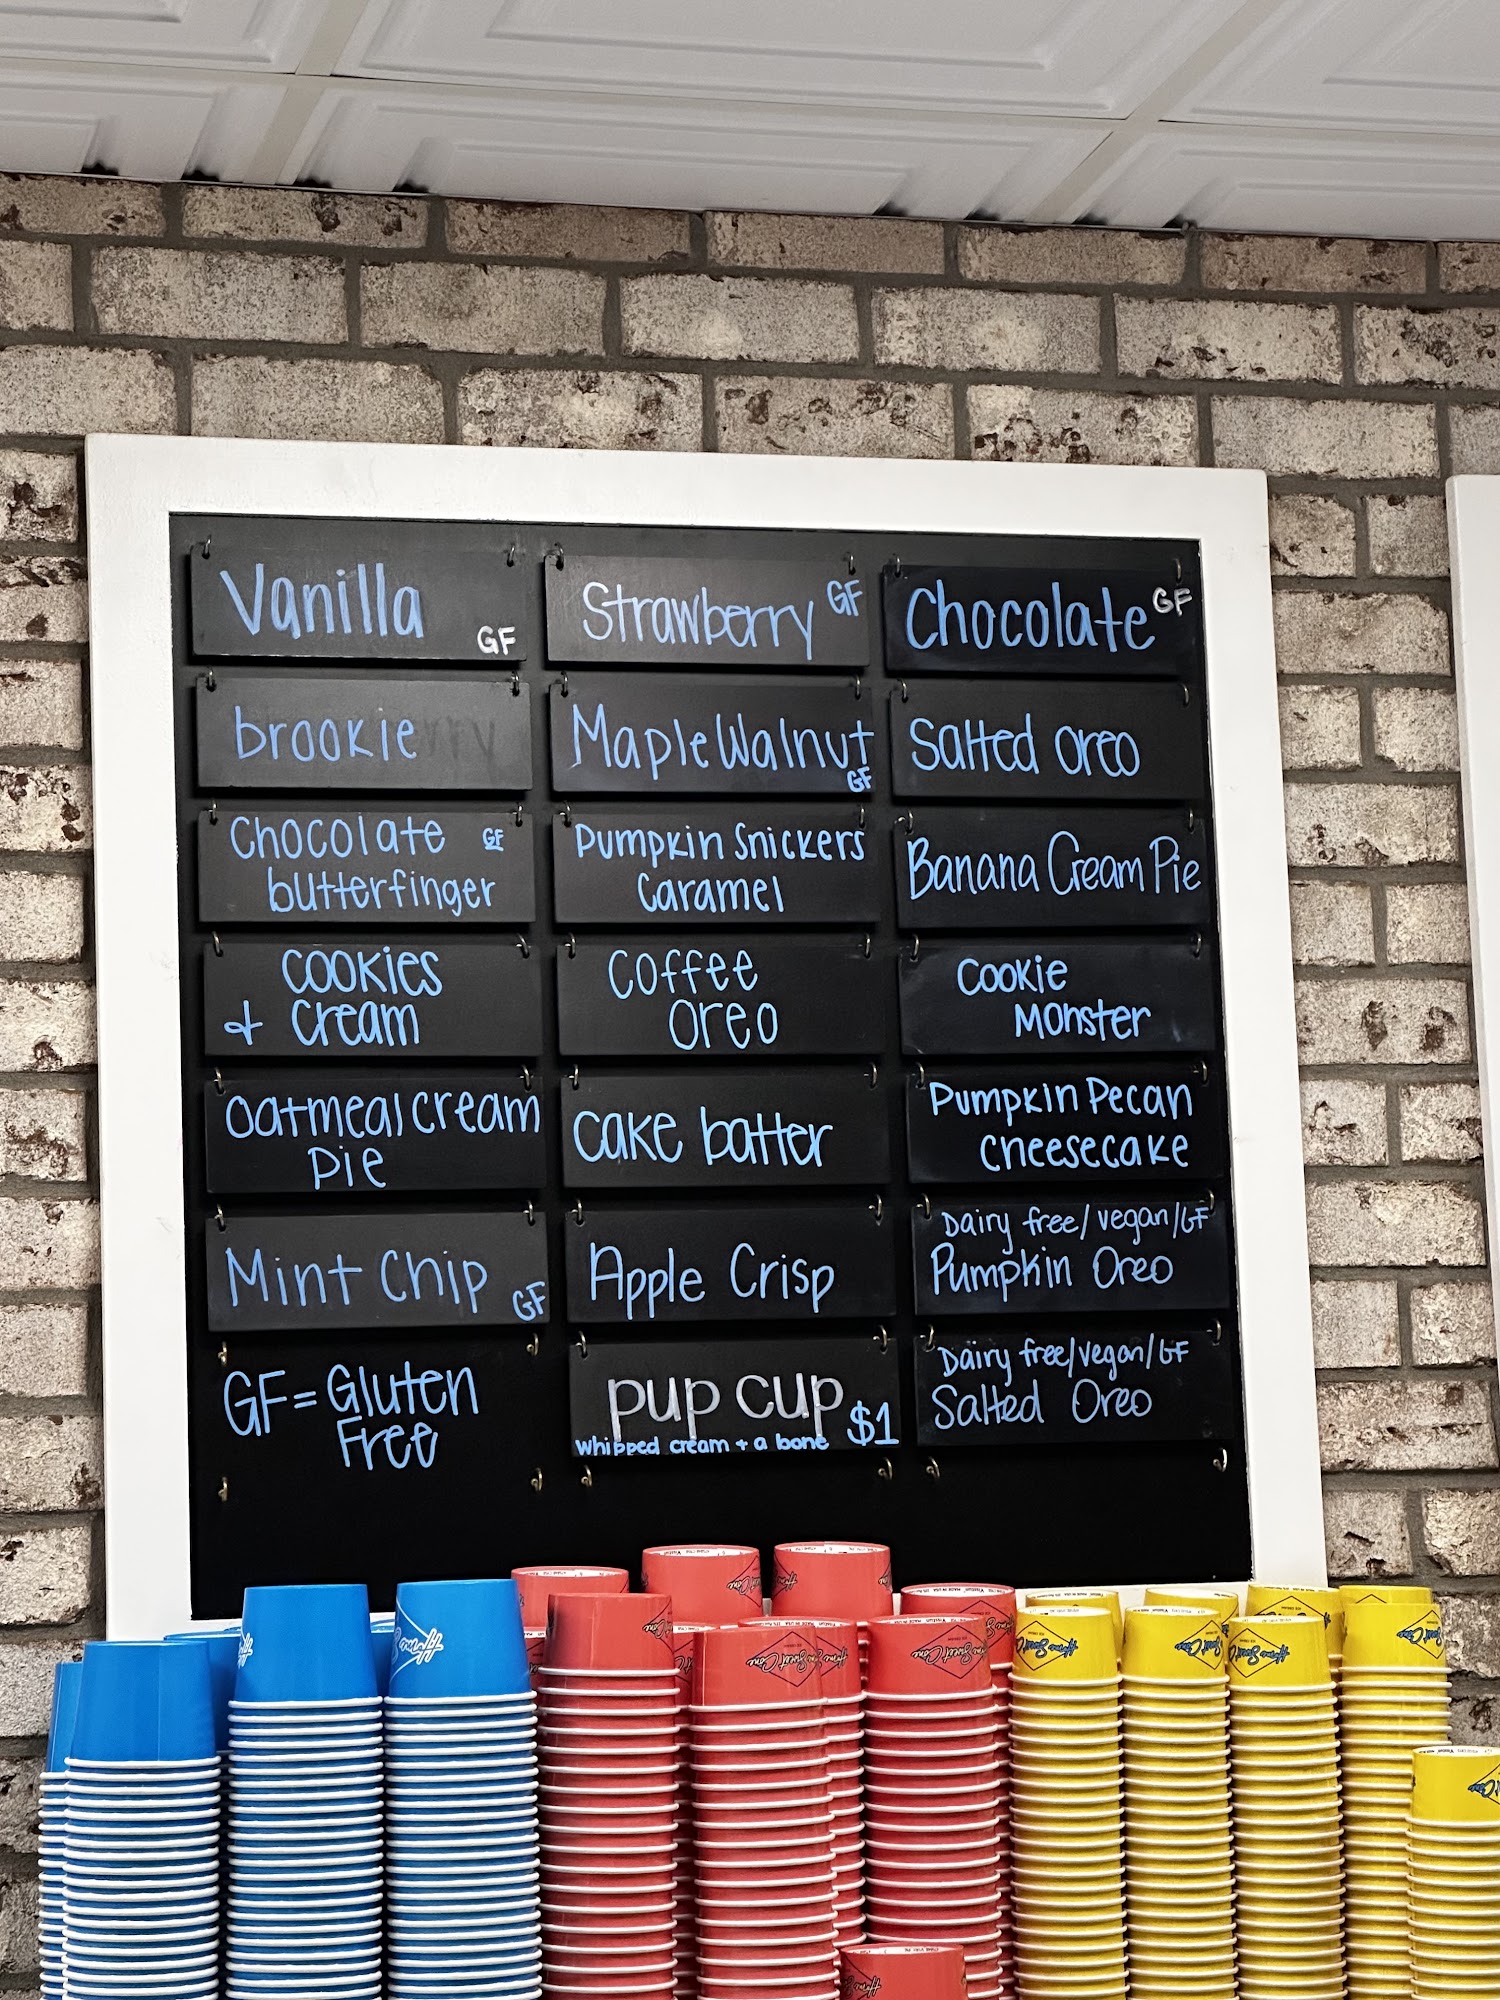 Vanilla
GF
Strawberry GF
Chocolate GF
brookie
Maple Walnut
GF
Salted oreo
Chocolate GF
butterfinger
Pumpkin Snickers
Caramel
Banana Cream Pie
Cookies
+ Cream
Coffee
Oreo
Cookie
Monster
Oatmeal cream
Pie
cake batter
Pumpkin Pecan
Cheesecake
Mint Chip GF
Apple Crisp
Dairy free/vegan/GF
Pumpkin Oreo
GF = Gluten
Free
pup cup $1
whipped cream + a bone
Dairy free/vegan/GF
Salted Oreo
Home Sweet Cone